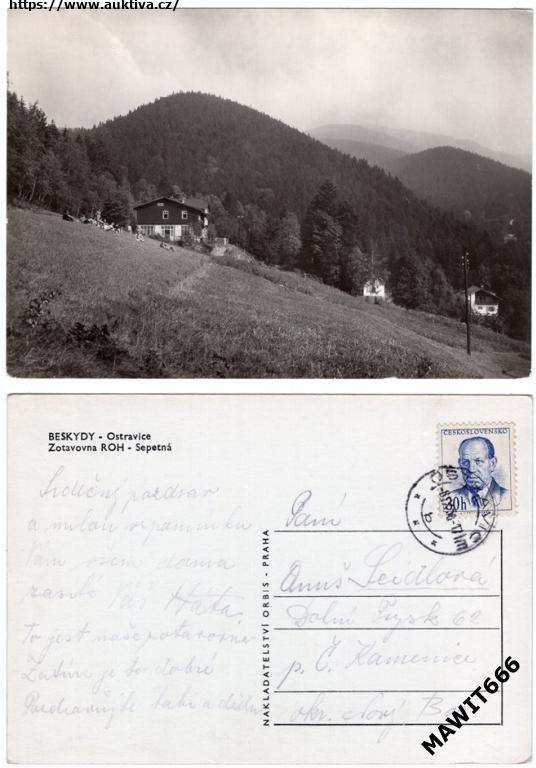 https://www.auktiva.cz/
BESKYDY - Ostravice
Zotavovna ROH - Sepetná
Srdečný pozdrav
a milou vzpomínku
Vám všem doma
zasílá Váš Háta
To jest naše zotavovna
Zatím je to dobré
Pozdravujte babi a dědu
NAKLADATELSTVÍ ORBIS - PRAHA
ČESKOSLOVENSKO
30h
OSTRAVICE
b
Paní
Anuš Seidlová
Dolní Prysk 62
p. Č. Kamenice
okr. Nový Bor
MAWIT666